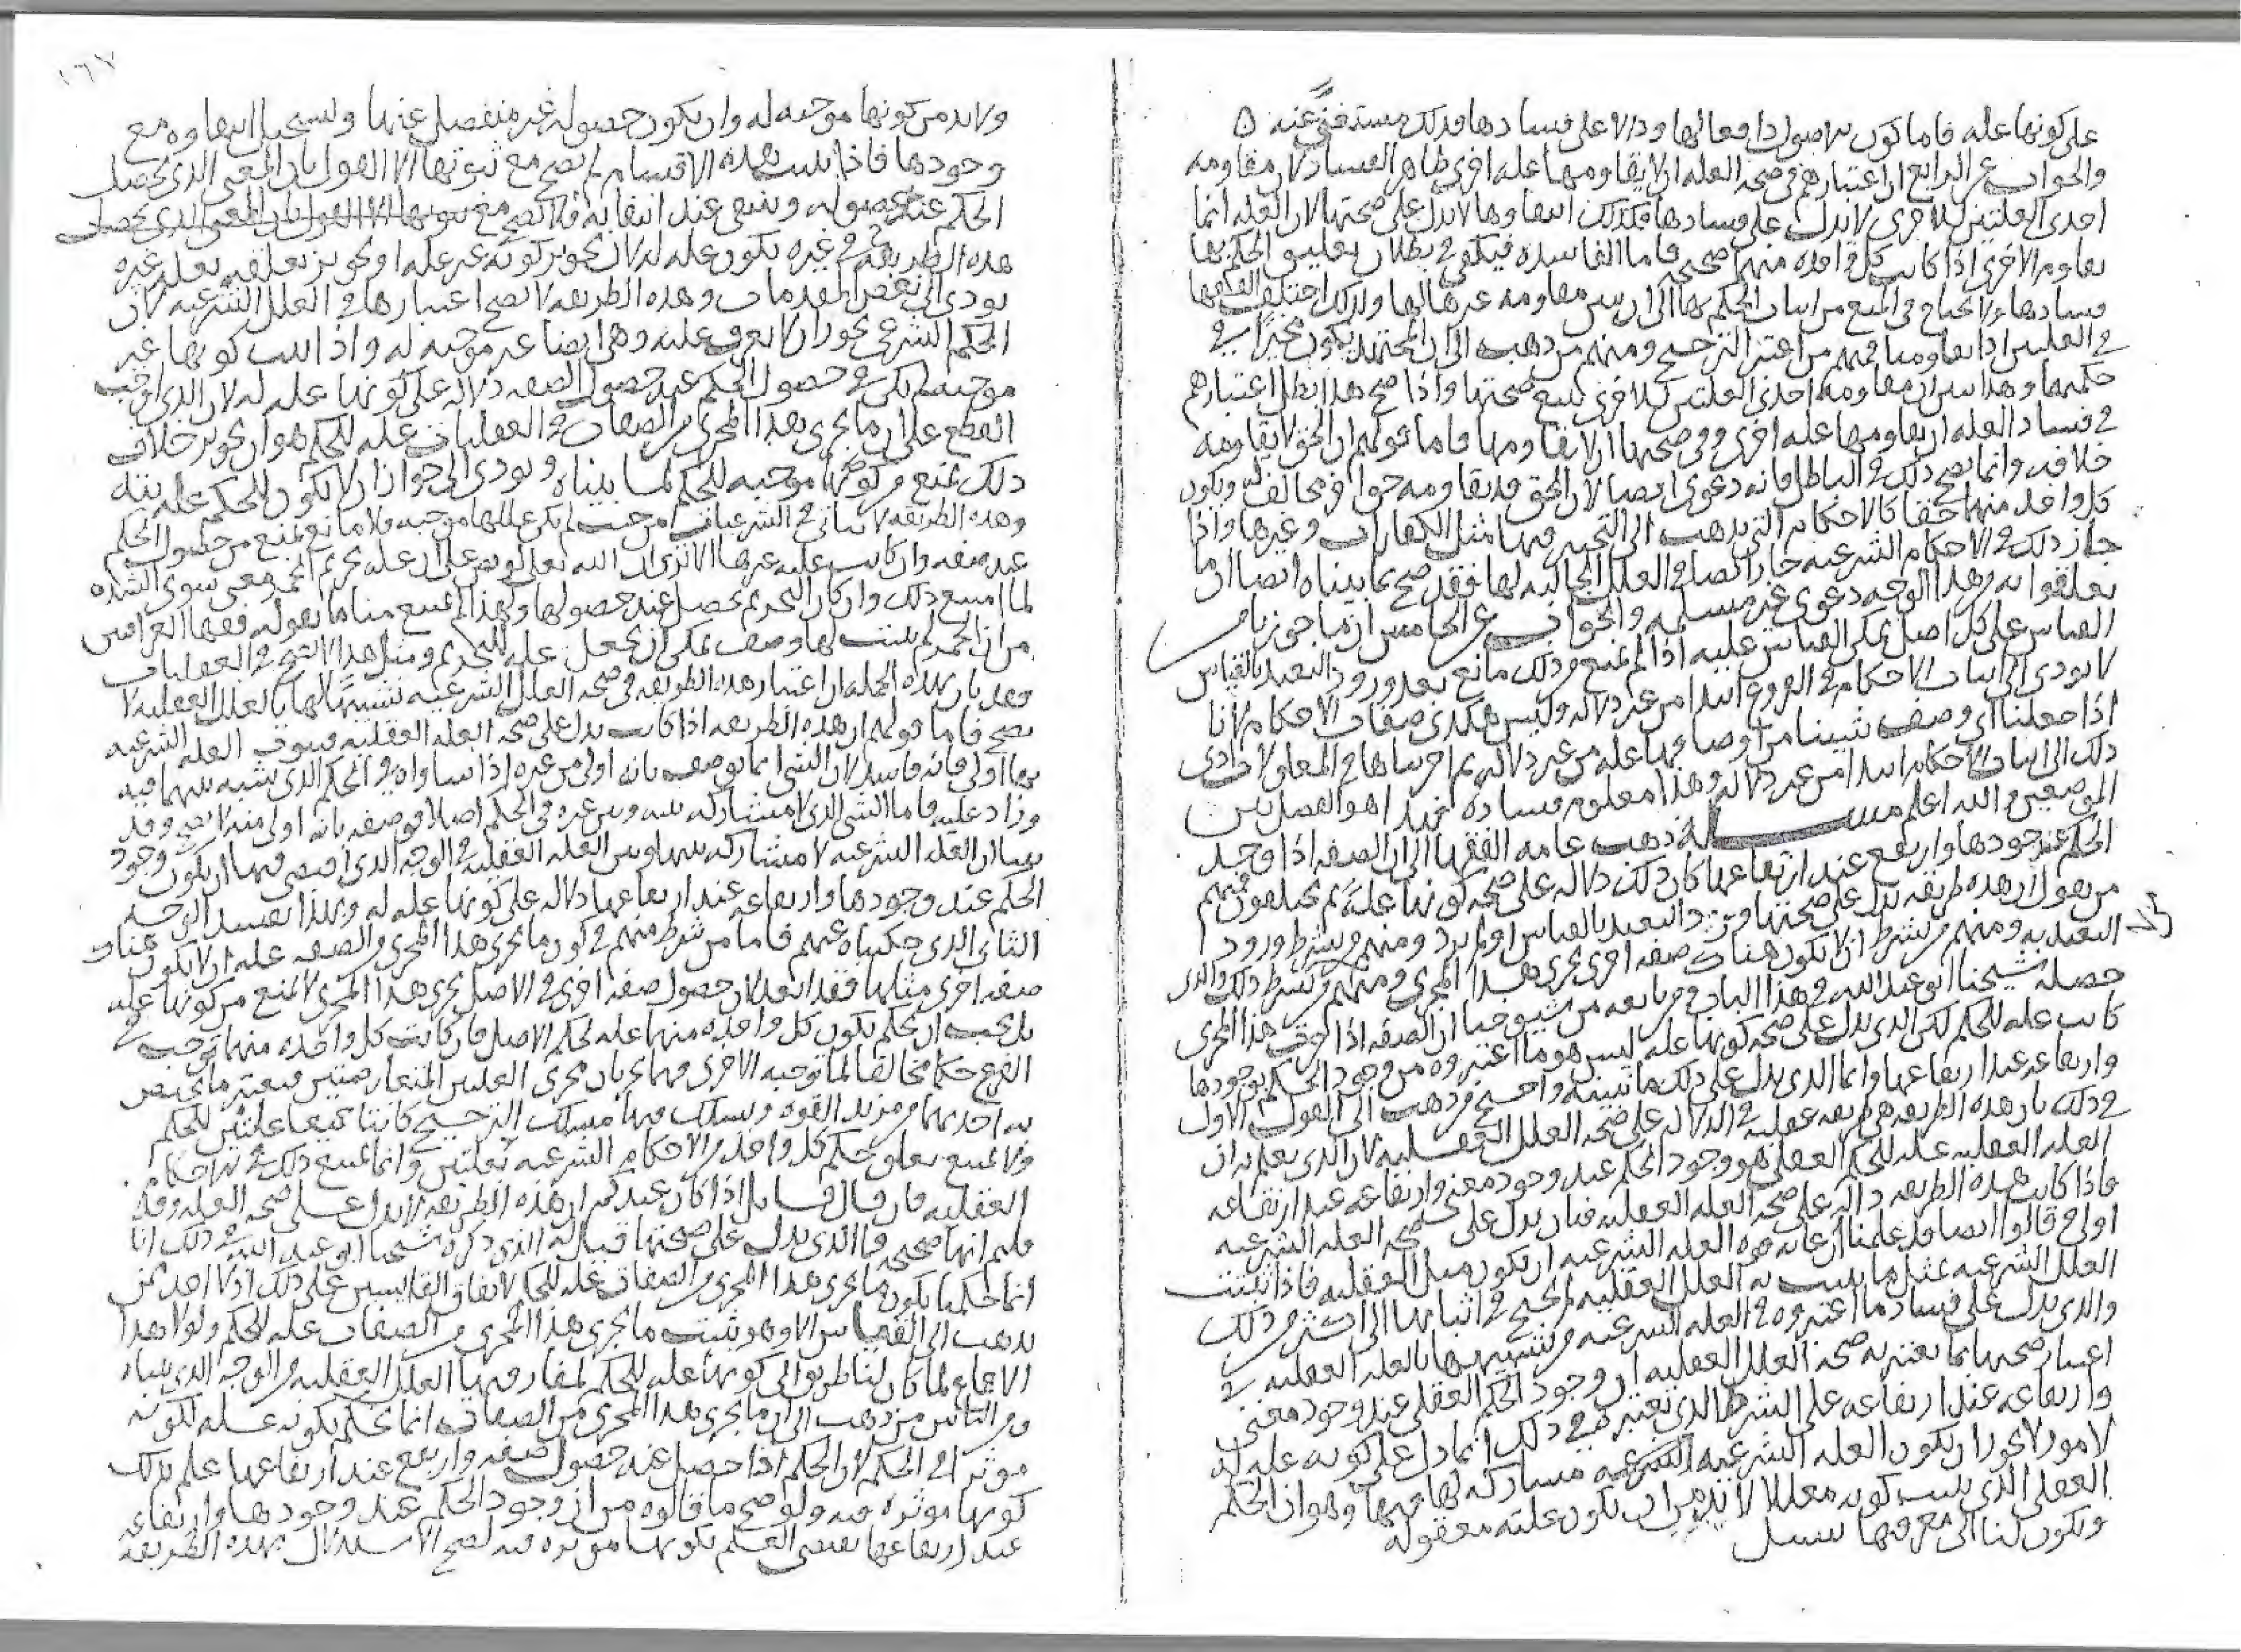 على كونها علة فاما كون الاصول دافعا لها ودالا على فسادها فذلك مستغنى عنه ه
والجواب عن الرابع ان اعتبارهم في صحة العلة ان لا يقاومها علة اخرى ظاهر الفساد لان مقاومة
احدى العلتين للاخرى لا يدل على فسادها فكذلك انتفاوها لا يدل على صحتها لان العلة انما
تقاوم الاخرى اذا كانت كل واحدة منهما صحيحة فاما الفاسدة فيكفي في بطلان تعليق الحكم بها
فسادها ولا يحتاج في المنع من اثبات الحكم بها الى ان يبين مقاومة غيرها لها ولذلك اختلف الفقها
في العلتين اذا تقاومتا فمنهم من اعتبر الترجيح ومنهم من ذهب الى ان المجتهد يكون مخيرا في
حكمهما وهذا يبين ان مقاومة احدى العلتين للاخرى تتبع صحتها واذا صح هذا بطل اعتبارهم
في فساد العلة ان يقاومها علة اخرى وفي صحتها ان لا يقاومها فاما قولهم ان الحق لا يقاومه
خلافه وانما يصح ذلك في الباطل فانه دعوى ايضا لان الحق قد يقاومه حق اخر مخالف له ويكون
كل واحد منهما حقا كالاحكام التي يذهب الى التخيير فيها مثل الكفارات وغيرها واذا
جاز ذلك في الاحكام الشرعية جاز ايضا في العلل الجالبة لها فقد صح بما بيناه ايضا ان ما
تعلقوا به في هذا الوجه دعوى غير مسلمة والجواب عن الخامس ان ما جوزناه من
القياس على كل اصل يمكن القياس عليه اذا لم يمنع من ذلك مانع بعد ورود التعبد بالقياس
لا يودي الى اثبات الاحكام في الفروع ابتدا من غير دلالة وليس هكذى صفات الاحكام لانا
اذا جعلنا اي وصف شيينا من اوصافها علة من غير دلالة ثم اجريناها في المعلول لادى
ذلك الى اثبات الاحكام ابتدا من غير دلالة وهذا معلوم فساده فهذا هو الفصل بين
الموضعين والله اعلم مسـلة ذهب عامة الفقها الى ان الصفة اذا وجد
الحكم عند وجودها وارتفع عند ارتفاعها كان ذلك دلالة على صحة كونها علة ثم يختلفون فمنهم
من يقول ان هذه طريقة تدل على صحتها ورد التعبد بالقياس او لم يرد ومنهم من يشترط ورود
التعبد به ومنهم من يشترط ان لا يكون هناك صفة اخرى تجرى هذا المجرى ومنهم من لا يشترط ذلك والذي
حصله شيخنا ابو عبد الله في هذا الباب ومن تابعه من شيوخنا ان الصفة اذا جرت هذا المجرى
كانت علة للحكم لكن الذي يدل على صحة كونها علة ليس هو ما اعتبروه من وجود الحكم بوجودها
وارتفاعه عند ارتفاعها وانما الذي يدل على ذلك ما نبينه واحتج من ذهب الى القول الاول
في ذلك بان هذه الطريقة هي طريقة عقلية في الدلالة على صحة العلل العقلية لان الذي يعلم به ان
العلة العقلية علة للحكم العقلي هو وجود الحكم عند وجود معنى وارتفاعه عند ارتفاعه
فاذا كانت هذه الطريقة دالة على صحة العلة العقلية فبان يدل على صحة العلة الشرعية
اولى قالوا ايضا قد علمنا ان غاية قوة العلة الشرعية ان تكون مثل العقلية فاذا ثبتت
العلل الشرعية بمثل ما يثبت به العلل العقلية لم يحتج في اثباتها الى اكثر من ذلك
والذي يدل على فساد ما اعتبروه في العلة الشرعية من تشبيهها بالعلة العقلية في
اعتبار صحتها بما يعتبر به صحة العلل العقلية ان وجود الحكم العقلي عند وجود معنى
وارتفاعه عند ارتفاعه على الشرط الذي نعتبره في ذلك انما دل على كونه علة له
لامور لا يجوز ان يكون العلة الشرعية مشاركة لها فيها وهو ان الحكم
العقلي الذي يثبت كونه معللا لا بد من ان يكون علته معقولة
ويكون لنا الى معرفتها سبيل
١٦٧
ولا بد من كونها موجبة له وان يكون حصوله غير منفصل عنها ويستحيل انتفاوه مع
وجودها فاذا ثبتت هذه الاقسام لم يصح مع ثبوتها الا القول بان المعنى الذي يحصل
الحكم عند حصوله وينتفي عند انتفايه
هذه الطريقة في غيره يكون علة له لان تجويز كونه غير علة او تجويز تعلقه بعلة غيره
يودي الى نقض المقدمات وهذه الطريقة لا يصح اعتبارها في العلل الشرعية لان
الحكم الشرعي يجوز ان لا يعرف علته وهي ايضا غير موجبة له واذا ثبت كونها غير
موجبة لم يكن في حصول الحكم عند حصول الصفة دلالة على كونها علة له لان الذي اوجب
القطع على ان ما يجرى هذا المجرى من الصفات في العقليات علة للحكم هو ان تجويز خلاف
ذلك يمنع من كونها موجبة للحكم لما بيناه ويودي الى جواز ان لا يكون للحكم علة بتة
وهذه الطريقة لا تتاتى في الشرعيات من حيث لم تكن عللها موجبة فلا مانع يمنع من حصول الحكم
عند صفة وان كانت علته غيرها الا ترى ان الله تعالى لو نص على ان علة تحريم الخمر معنى سوى الشدة
لما امتنع ذلك وان كان التحريم يحصل عند حصولها ولهذا لم يمتنع منا ما يقوله فقها العراقيين
من ان الخمر لم يثبت لها وصف يمكن ان يجعل علة للتحريم ومثل هذا لا يصح في العقليات
فقد بان بهذه الجملة ان اعتبار هذه الطريقة في صحة العلل الشرعية تشبيها لها بالعلل العقلية لا
يصح فاما قولهم ان هذه الطريقة اذا كانت تدل على صحة العلة العقلية فثبوت العلة الشرعية
بها اولى فانه فاسد لان الشي انما يوصف بانه اولى من غيره اذا ساواه في الحكم الذي يشبه بينهما فيه
وزاد عليه فاما الشي الذي لا مشاركة بينه وبين غيره في الحكم اصلا فوصفه بانه اولى منه لا يصح وقد
بينا ان العلة الشرعية لا مشاركة بينها وبين العلة العقلية في الوجه الذي اقتضى فيها ان يكون وجود
الحكم عند وجودها وارتفاعه عند ارتفاعها دلالة على كونها علة له وبهذا يفسد الوجه
الثاني الذي حكيناه عنهم فاما من شرط منهم في كون ما يجرى هذا المجرى من الصفة علة ان لا يكون هناك
صفة اخرى مثلها فقد ابعد لان حصول صفة اخرى في الاصل تجرى هذا المجرى لا يمنع من كونها علة
بل يجب ان يحكم بكون كل واحدة منهما علة لحكم الاصل فان كانت كل واحدة منهما توجب في
الفرع حكما مخالفا لما توجبه الاخرى فهما يجريان مجرى العلتين المتعارضتين فيعتبر ما يختص
به احدهما من مزيد القوة ويسلك فيهما مسلك الترجيح كانتا جميعا علتين للحكم
ولا يمتنع تعلق حكم كل واحد من الاحكام الشرعية بعلتين وانما يمتنع ذلك في الاحكام
العقلية فان قال قايل اذا كان عندكم ان هذه الطريقة لا تدل على صحة العلة وقد
قلتم انها صحيحة فما الذي يدل على صحتها قيل له الذي ذكره شيخنا ابو عبد الله في ذلك انا
انما حكمنا بكون ما يجرى هذا المجرى من الصفات علة للحكم لاتفاق القايسين على ذلك اذ لا احد ممن
يذهب الى القياس الا وهو يثبت ما يجرى هذا المجرى من الصفات علة للحكم ولولا هذا
الاجماع لما كان لنا طريق الى كونها علة للحكم لمفارقتها العلل العقلية من الوجه الذي بيناه
ومن الناس من ذهب الى ان ما يجرى هذا المجرى من الصفات انما يحكم بكونه علة لكونه
موثرا في الحكم لان الحكم اذا حصل عند حصول صفة وارتفع عند ارتفاعها علم بذلك
كونها موثرة فيه ولو صح ما قالوه من ان وجود الحكم عند وجودها وارتفاعه
عند ارتفاعها يقتضي العلم بكونها موثرة فيه لصح الاستدلال بهذه الطريقة